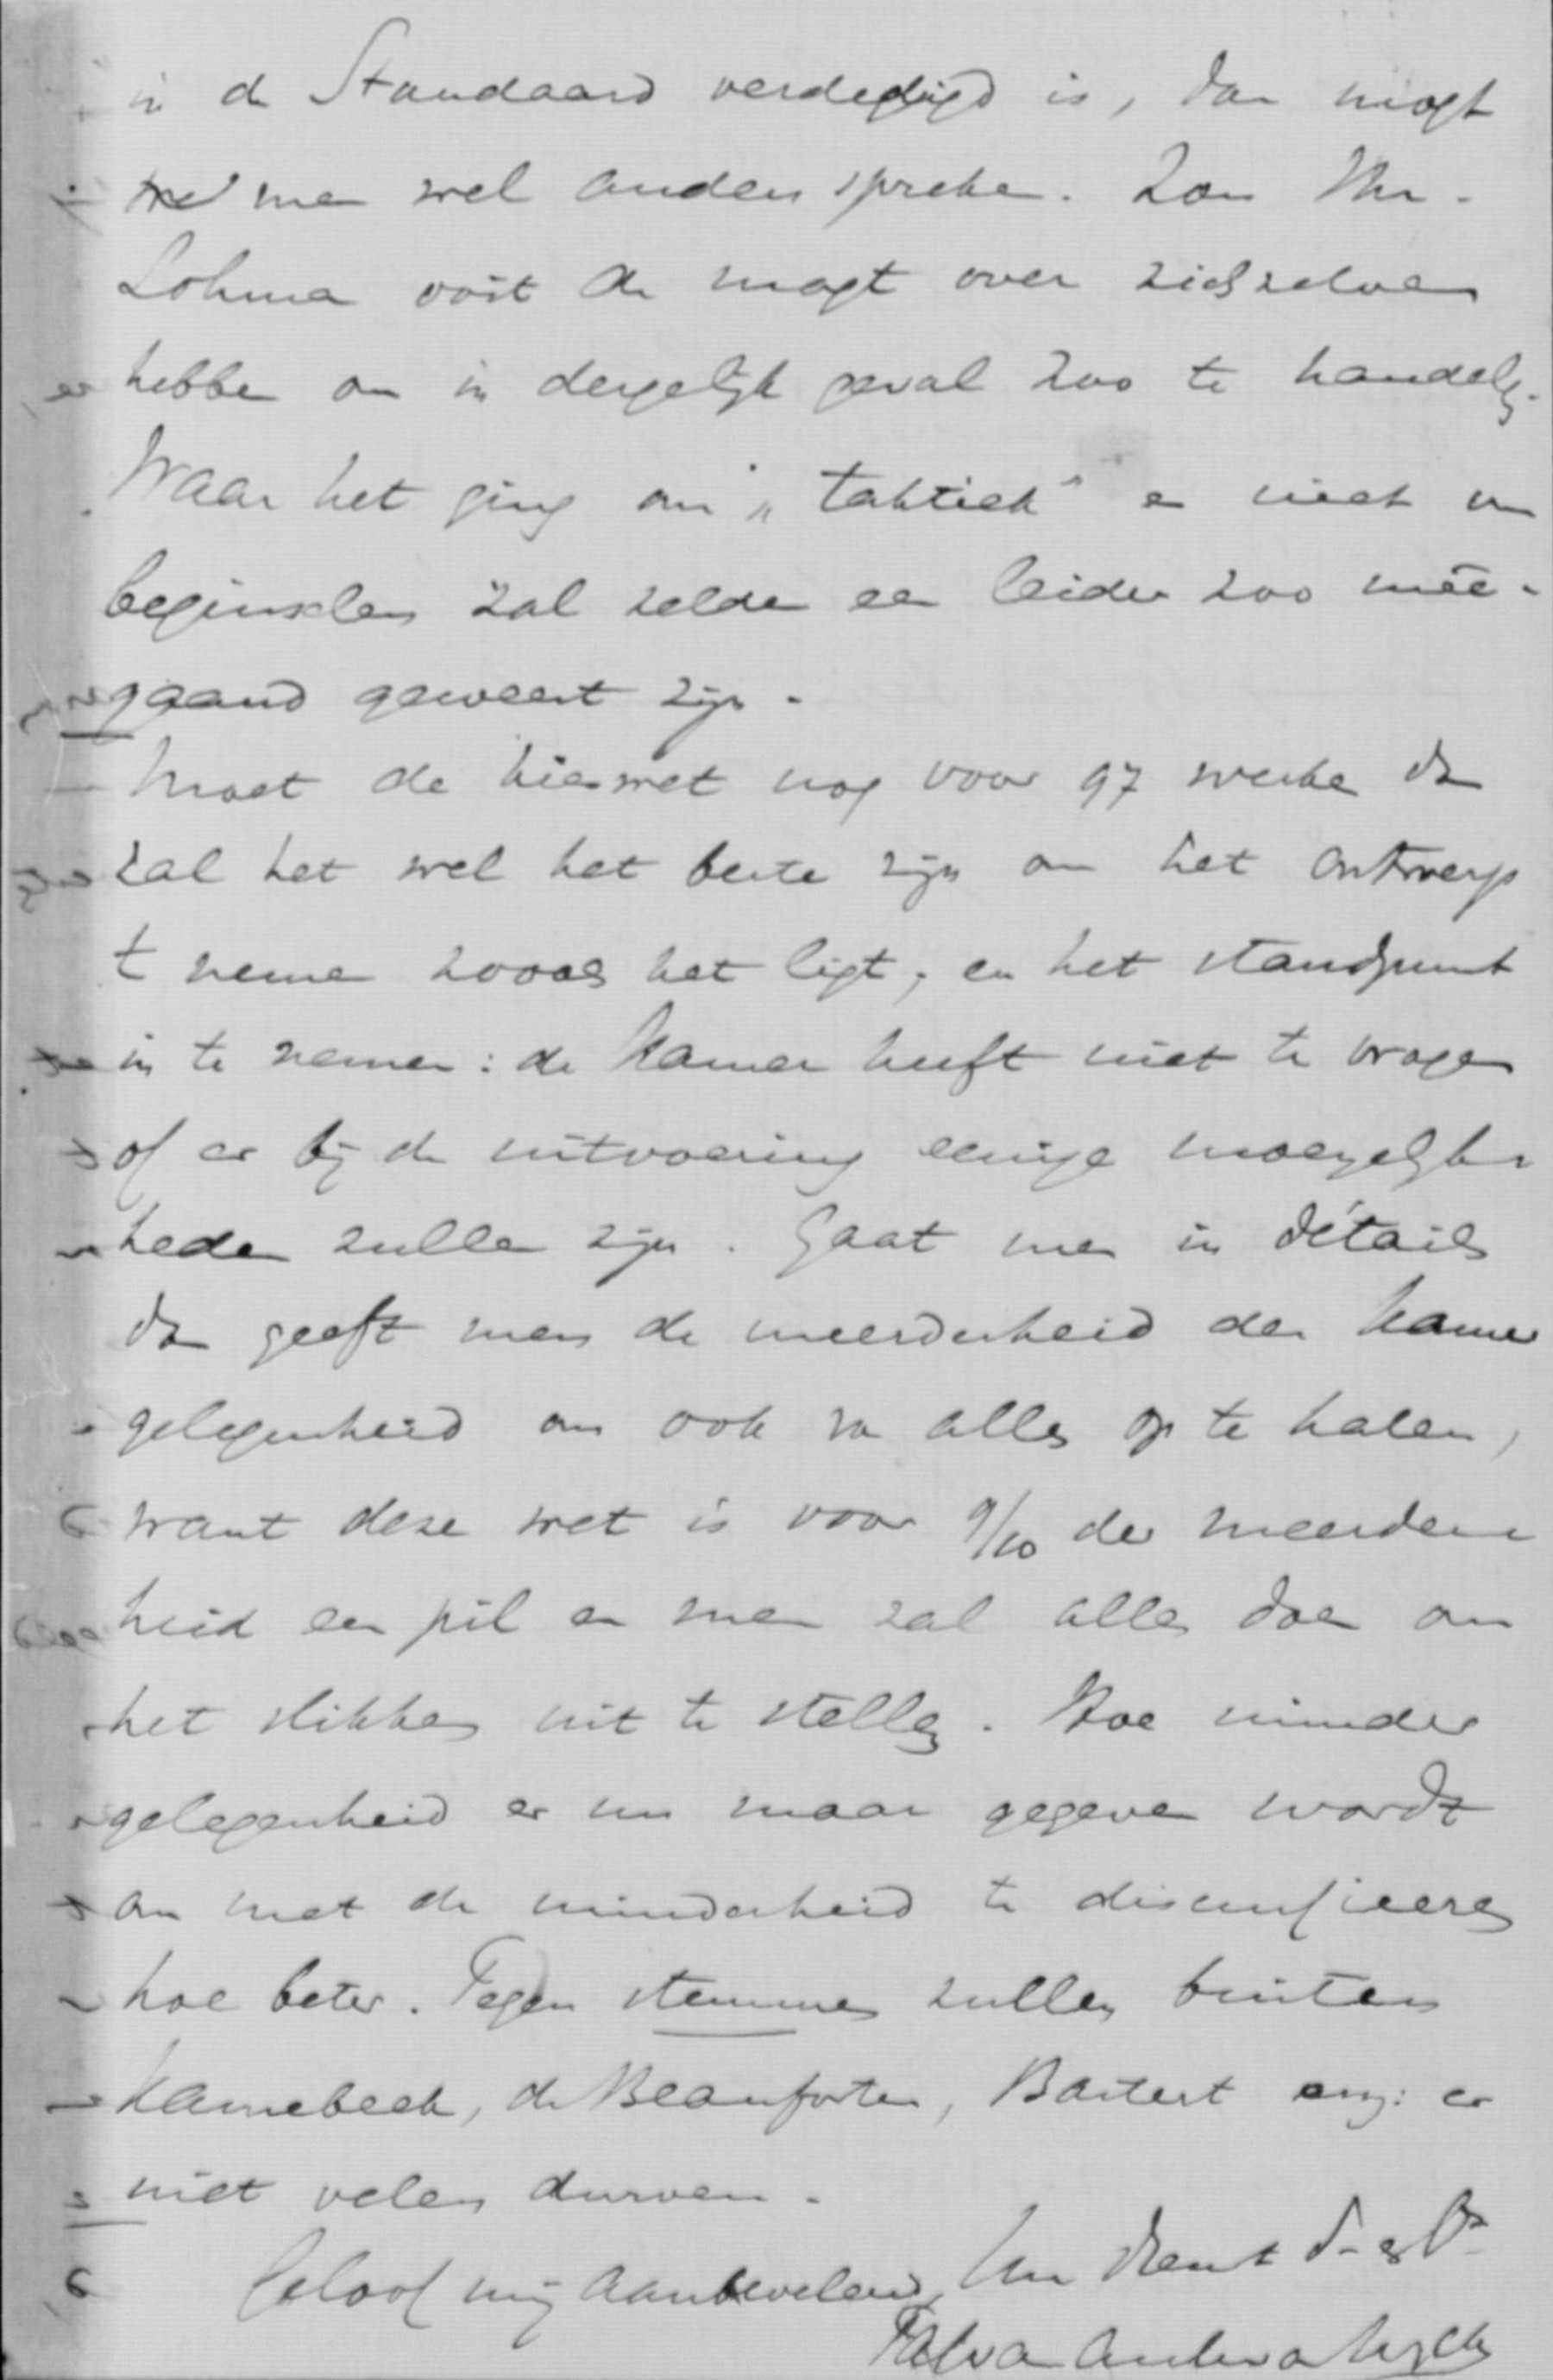 in de Standaard verdedigd is, dan mogt
men wel anders spreken. Zou Mr.
Lohman ooit de magt over zichzelven
hebben om in dergelijk geval zoo te handelen.
Waar het ging om „taktiek" en niet om
beginselen zal zelden een leider zoo mêe-
gaand geweest zijn.
Moet de kieswet nog voor 97 werken dan
zal het wel het beste zijn om het ontwerp
te nemen zooals het ligt, en het standpunt
in te nemen: de Kamer heeft niet te vragen
of er bij de uitvoering eenige moeyelijk-
heden zullen zijn. Gaat men in détails
dan geeft men de meerderheid der Kamer
gelegenheid om ook van alles op te halen,
want deze wet is voor 9/10 der meerder-
heid een pil en men zal alles doen om
het slikken uit te stellen. Hoe minder
gelegenheid er nu maar gegeven wordt
om met de minderheid te discussieeren
hoe beter. Tegen stemmen zullen buiten
Karnebeek, de Beauforten, Bastert enz: er
niet velen durven.
Geloof mij aanbevelend, Uw dienst d. en Vr